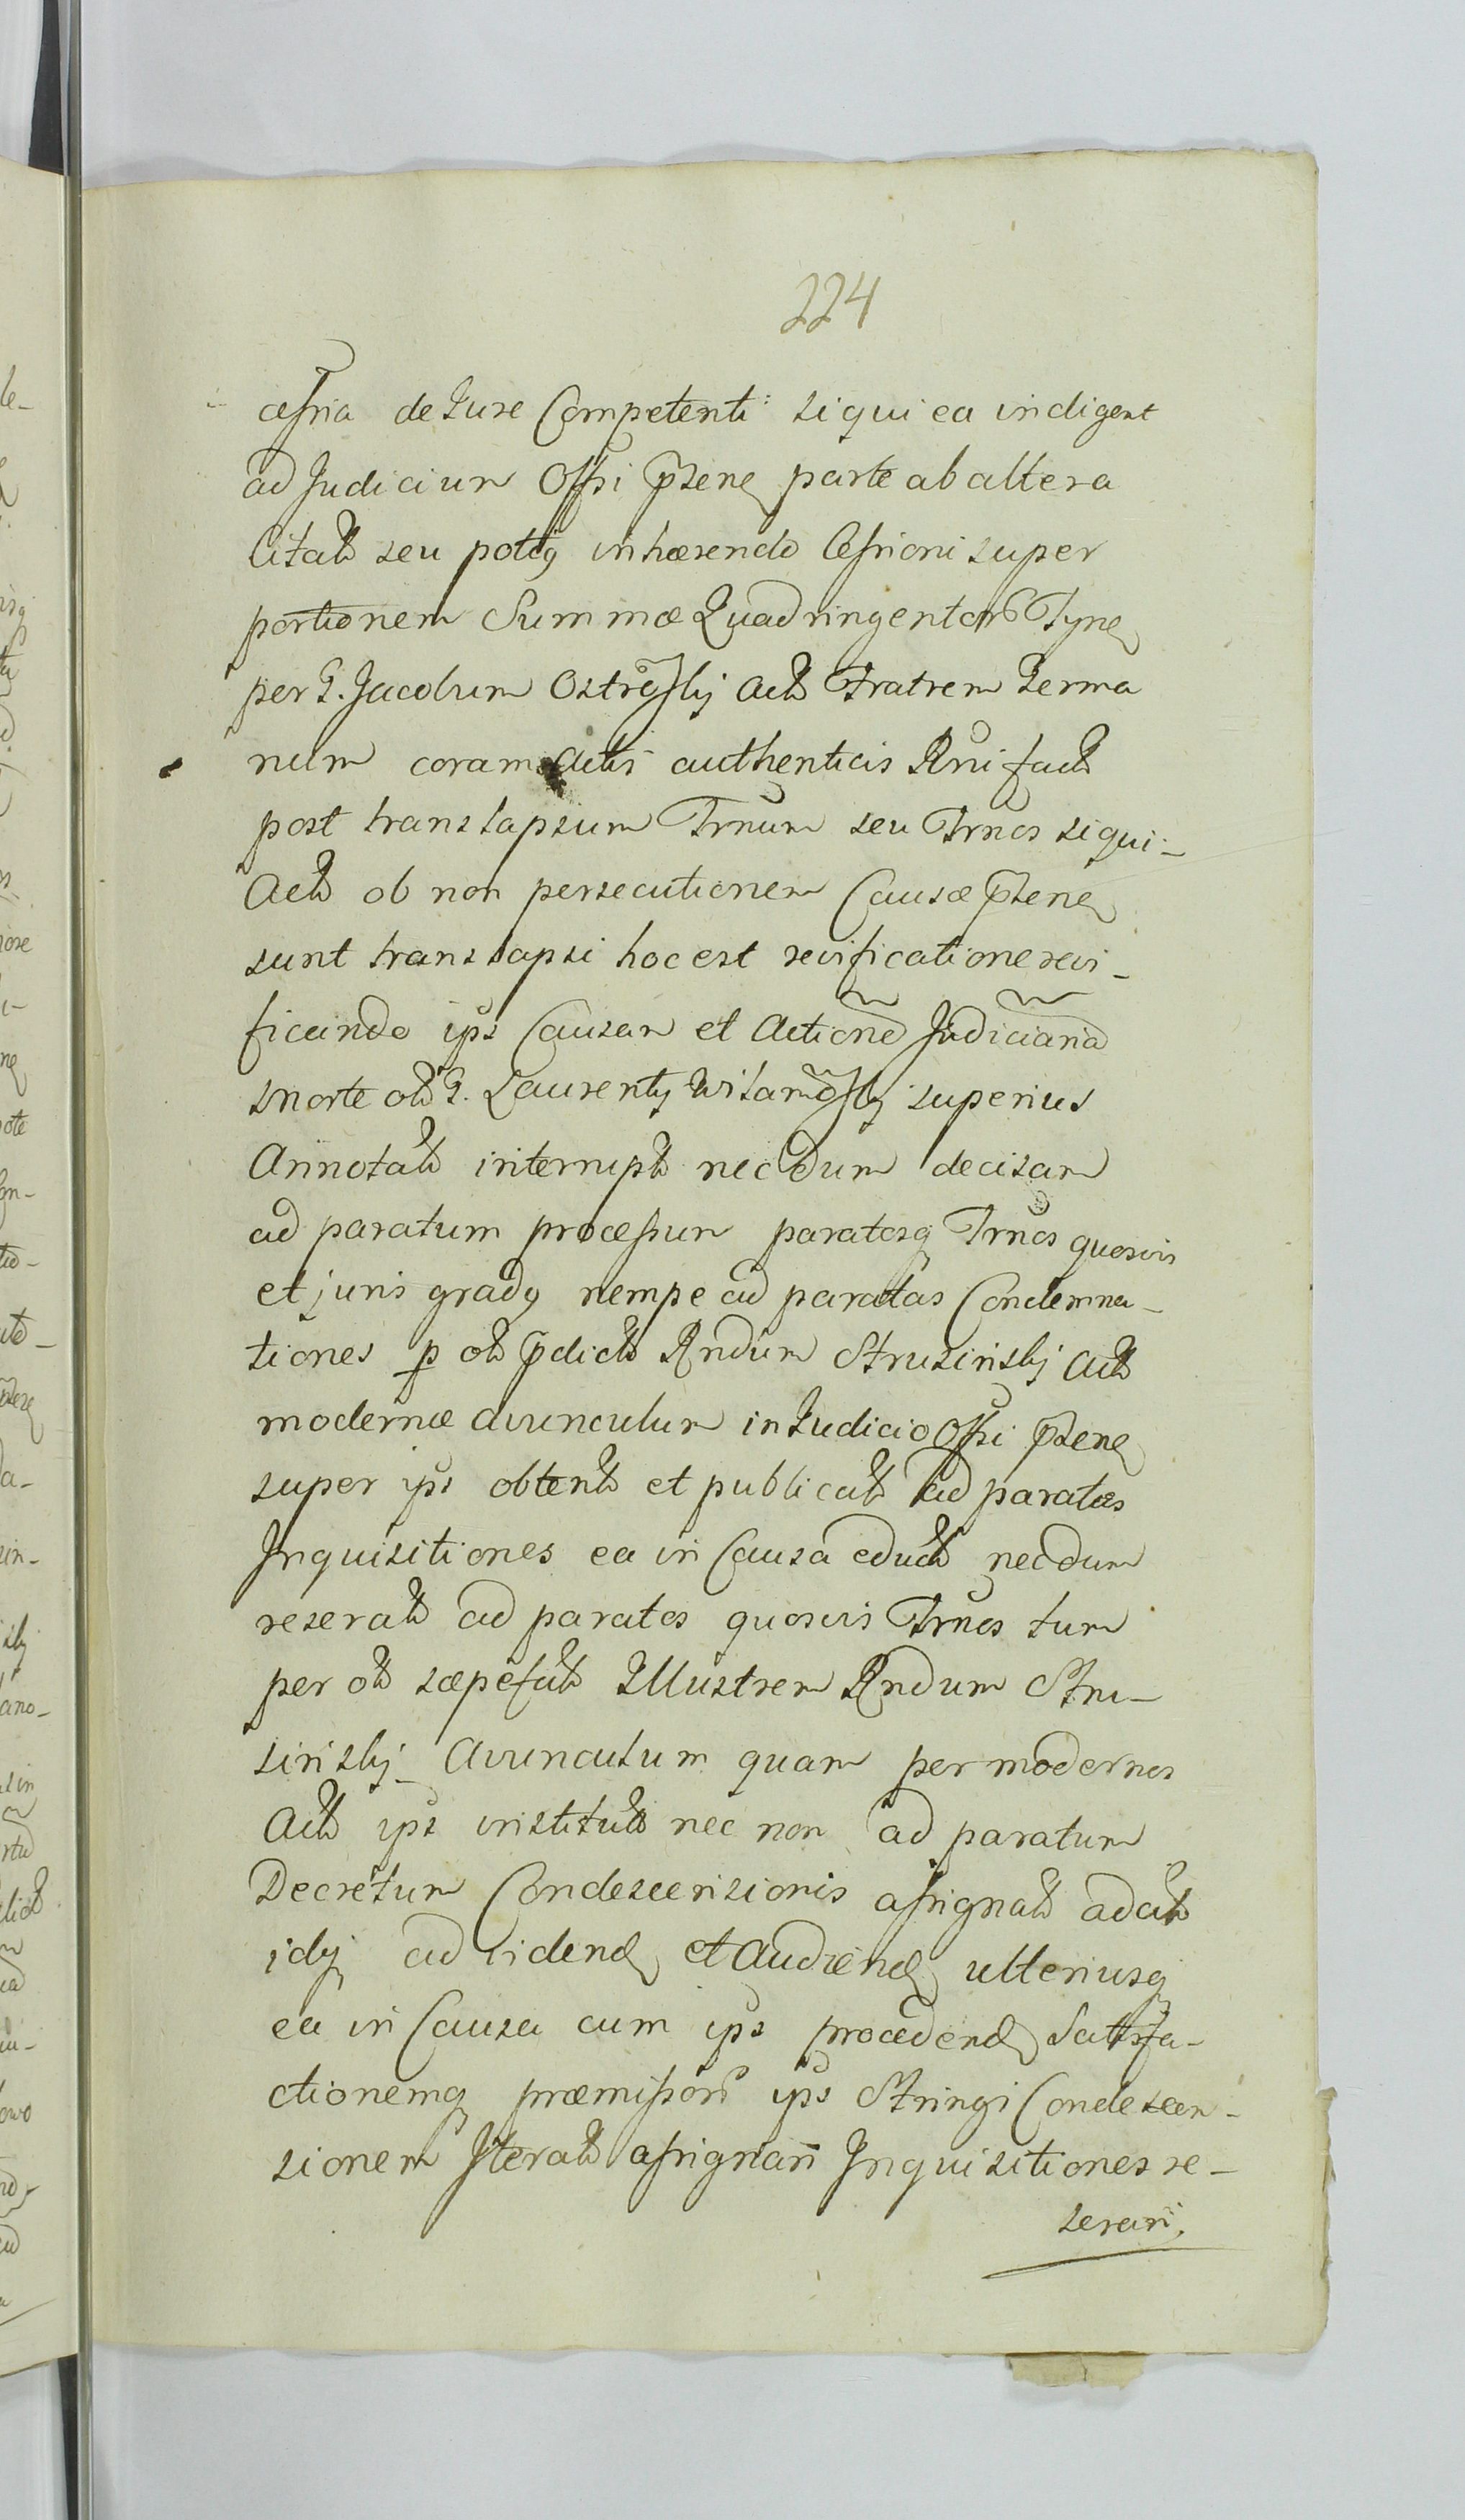 224
cessria de Jure Competenti: siqui ea indigent
ad Judicium Offi pñteneq parte ab altera
Citatt seu potiq inhærendo Cessioni super
portionem Summæ Quadringentorũ Tyneq
per G. Jacobum Ostroskij Actt Fratrem Germa
num coram Actis authenticis Rñi fact
post translapsum Trnum seu Trnos siqui-
Actt ob non persecutionem Causæ pñteneq
sunt translapsi hoc est reiificatione reivi-
ficando ips Causam et Actionẽ Judiciariã
morte olt G. Laurentij superius
Annotatt interruptt necdum decisam
ad paratum processum paratosq Trnos quosvis
et juris gradq nempe ad paratas Condemna-
tiones p olt pdictt Rndum Strusinskij Actt
modernæ avunculum in Judicio Offi pñteneq
super ips obtentt et publicatt ad paratas
Inquisitiones ea in Causa eductt necdum
reseratt ad paratos quosvis Trnos tum
per olt sæpefatt Illustrem Rndum Stru-
sinskij Avunculum quam per modernos
Actt ips institutt nec non ad paratum
Decretum Condescensionis assignatt adcitt
idq ad videndq et Audiendq ulteriusq
ea in Causa cum ips procedendq Satisfa-
ctionemq præmissorũ ips Stringi Condescen-
sionem Iteratt assignari Inquisitiones re-
serari.